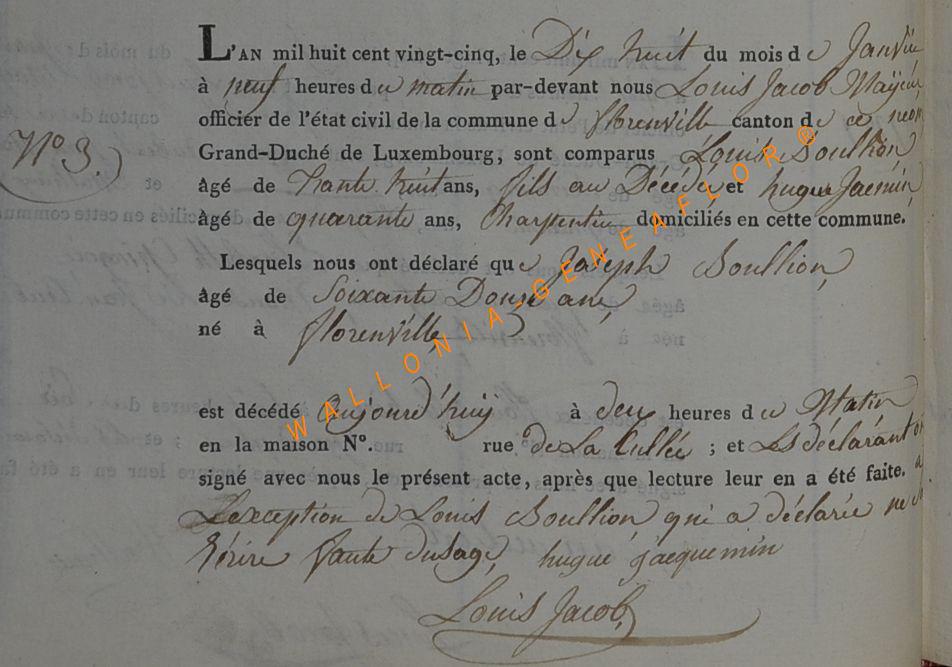 L'AN mil huit cent vingt-cinq, le Dix huit du mois de Janvier
à neuf heures du matin par-devant nous Louis Jacob Mayeur
officier de l'état civil de la commune de florenville canton de ce nom
N° 3.
Grand-Duché de Luxembourg, sont comparus Louis Boullion
âgé de trante huit ans, fils au Décédé et hugue Jacmin
âgé de quarante ans, Charpentier domiciliés en cette commune.
Lesquels nous ont déclaré que Joseph Boullion,
âgé de Soixante Douze ans,
né à florenville
est décédé aujourd'huÿ à deux heures du Matin
en la maison N°. rue de La Cullée ; et Les déclarant ont
signé avec nous le présent acte, après que lecture leur en a été faite. a
Lexception de Louis Boullion qui a déclarée ne
Ecrire faute dusage, hugue jacquemin
Louis Jacob,
WALLONIA-GENEAFLOR®